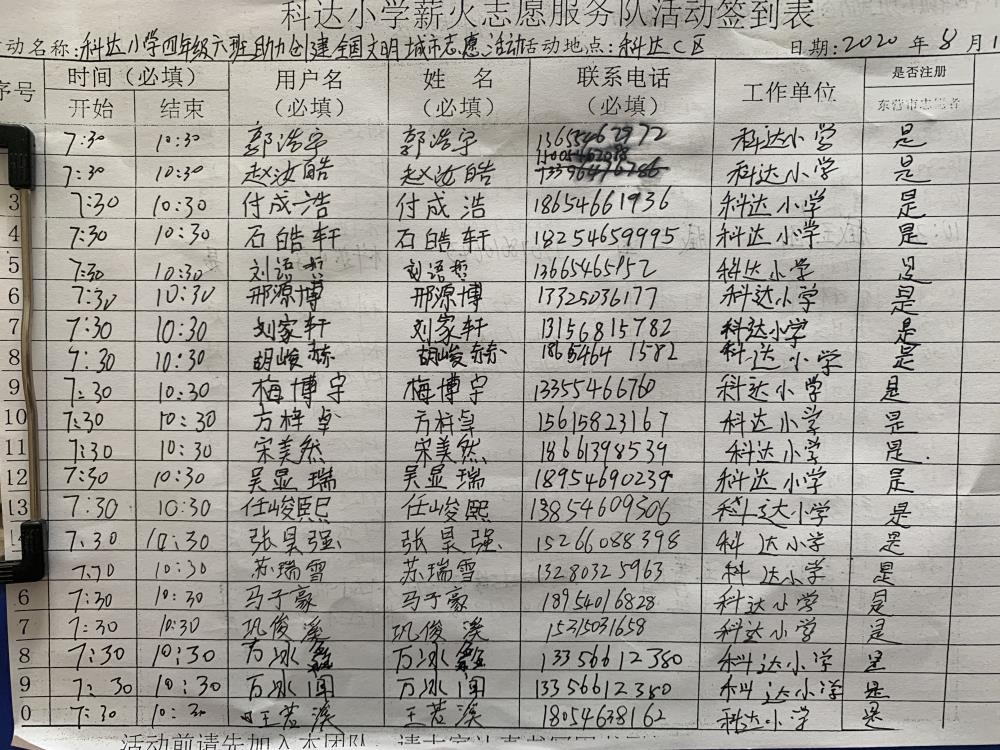 科达小学薪火志愿服务队活动签到表
动名称:科达小学四年级六班助力创建全国文明城市志愿活动 活动地点:科达C区 日期:2020年8月1
序号 时间(必填) 用户名 姓名 联系电话 工作单位 是否注册
开始 结束 (必填) (必填) (必填) 东营市志愿者
7:30 10:30 郭浩宇 郭浩宇 13655462972 科达小学 是
7:30 10:30 赵汝皓 赵汝皓 科达小学 是
3 7:30 10:30 付成浩 付成浩 18654661936 科达小学 是
4 7:30 10:30 石皓轩 石皓轩 18254659995 科达小学 是
5 7:30 10:30 刘语哲 刘语哲 13665465152 科达小学 是
6 7:30 10:30 邢源博 邢源博 13325036177 科达小学 是
7 7:30 10:30 刘家轩 刘家轩 13156815782 科达小学 是
8 7:30 10:30 胡峻赫 胡峻赫 18654641582 科达小学 是
9 7:30 10:30 梅博宇 梅博宇 13355466760 科达小学 是
10 7:30 10:30 方梓卓 方梓卓 15615823167 科达小学 是
11 7:30 10:30 宋美然 宋美然 18661398539 科达小学 是.
12 7:30 10:30 吴显瑞 吴显瑞 18954690239 科达小学 是
13 7:30 10:30 任峻熙 任峻熙 13854609506 科达小学 是
14 7:30 10:30 张昊强 张昊强 15266088398 科达小学 是
7:30 10:30 苏瑞雪 苏瑞雪 13280325963 科达小学 是
6 7:30 10:30 马子豪 马子豪 18954016828 科达小学 是
7 7:30 10:30 巩俊溪 巩俊溪 15315031658 科达小学 是
8 7:30 10:30 万冰鑫 万冰鑫 13356612380 科达小学 是
9 7:30 10:30 万冰闻 万冰闻 13356612380 科达小学 是
0 7:30 10:30 王若溪 王若溪 18054638162 科达小学 是
活动前请先加入本团队